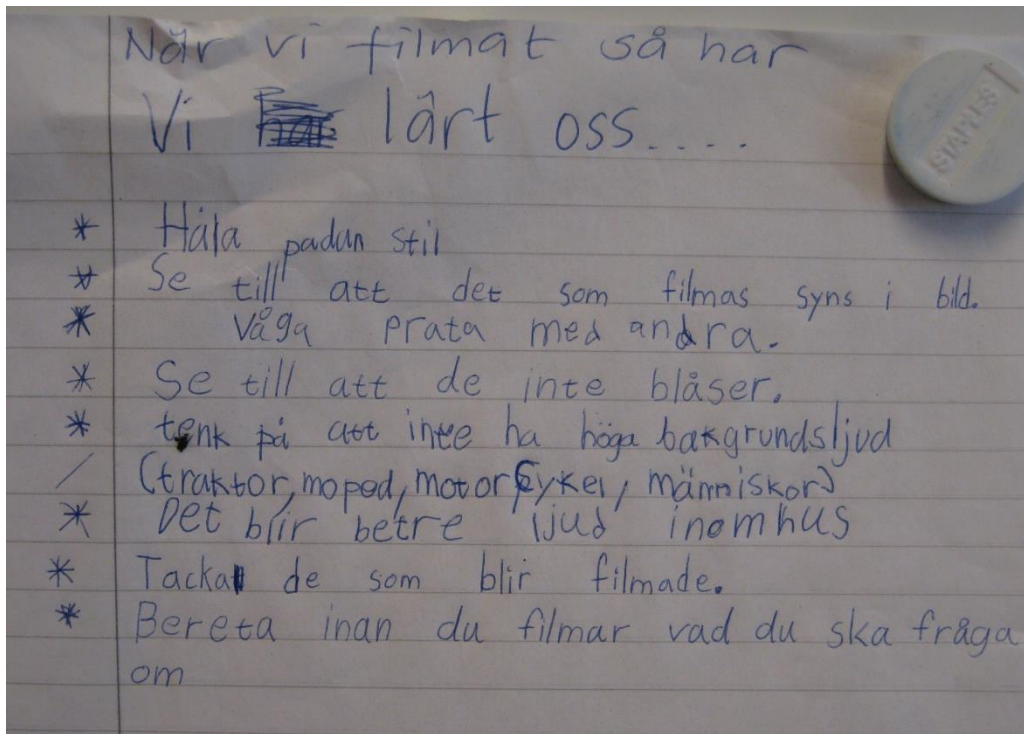 När vi filmat så har
Vi lärt oss.....
STAPLES
* Håla padan stil
* Se till att det som filmas syns i bild.
* våga prata med andra.
* Se till att de inte blåser.
* tenk på att inte ha höga bakgrundsljud
/ (traktor, moped, motorcykel, människor)
* Det blir betre ljud inomhus
* Tacka de som blir filmade.
* Bereta inan du filmar vad du ska fråga
om